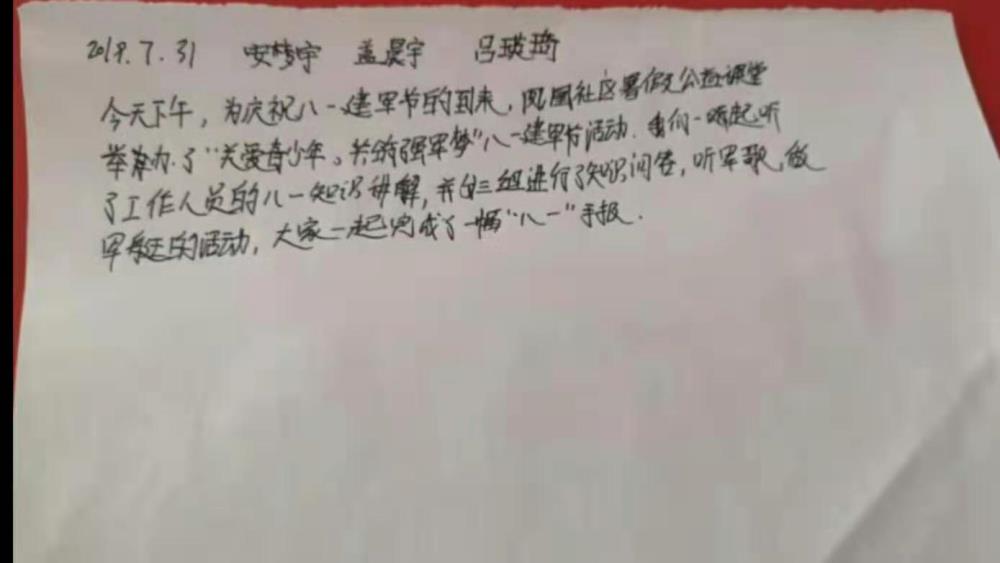 2018.7.31 安梦宇 孟昊宇 吕瑛琦
今天下午，为庆祝八一建军节的到来，凤凰社区暑假公益课堂
举办了“关爱青少年。共铸强军梦”八一建军节活动。我们一起听
了工作人员的八一知识讲解，并分三组进行了知识问答，听军歌，做
军的活动，大家一起完成了一幅“八一”手报.